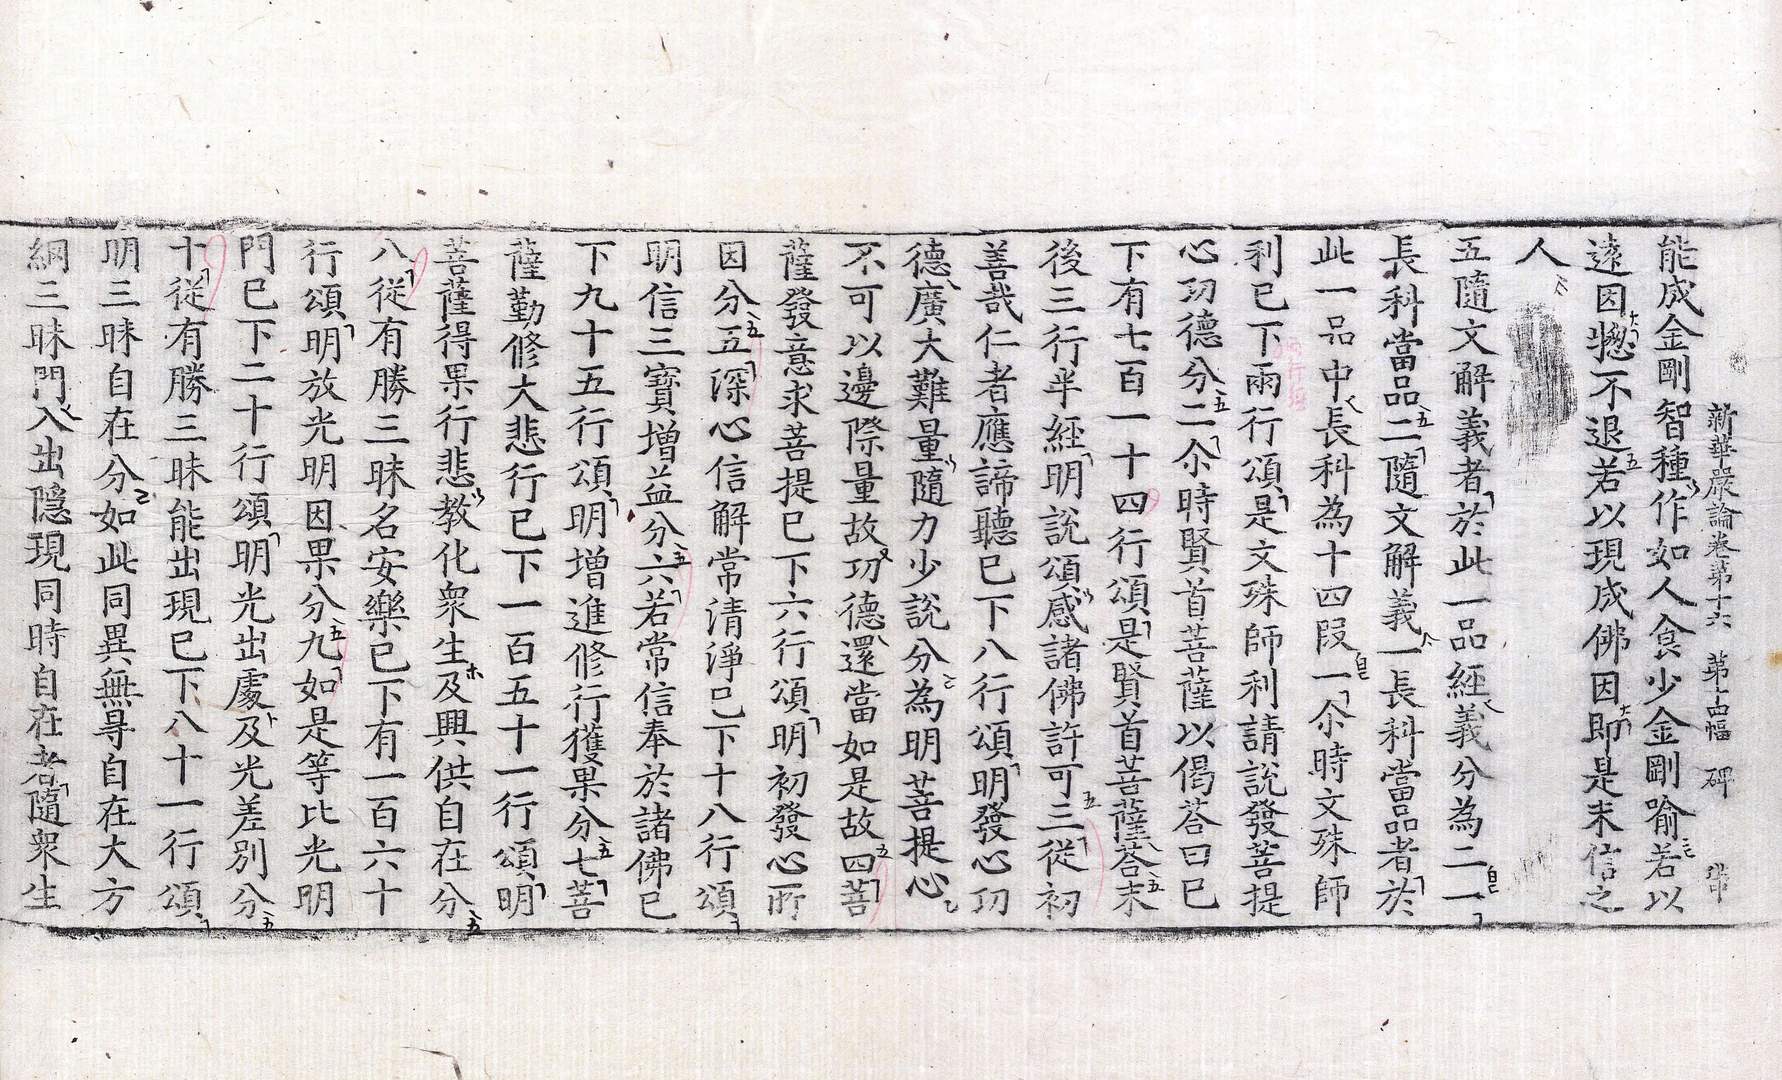 新華嚴論卷第十六 第十吉幅 碑
能成金剛智種作如人食少金剛喻若以
遠因揔不退若以現成佛因即是未信之
人
五隨文解義者於此一品經義分為二一
長科當品二隨文解義一長科當品者於
此一品中長科為十四段一尒時文殊師
利已下兩行頌是文殊師利請說發菩提
心功德分二尒時賢首菩薩以偈荅曰已
下有七百一十四行頌是賢首菩薩荅末
後三行半經明說頌感諸佛許可三從初
善哉仁者應諦聽已下八行頌明發心功
德廣大難量隨力少說分為明菩提心
不可以邊際量故功德還當如是故四菩
薩發意求菩提已下六行頌明初發心所
因分五深心信解常清淨已下十八行頌
明信三寶增益分六若常信奉於諸佛已
下九十五行頌明增進修行獲果分七菩
薩勤修大悲行已下一百五十一行頌明
菩薩得果行悲教化衆生及興供自在分
八從有勝三昧名安樂已下有一百六十
行頌明放光明因果分九如是等比光明
門已下二十行頌明光出處及光差別分
十從有勝三昧能出現已下八十一行頌
明三昧自在分如此同異無㝵自在大方
網三昧門入出隱現同時自在者隨衆生